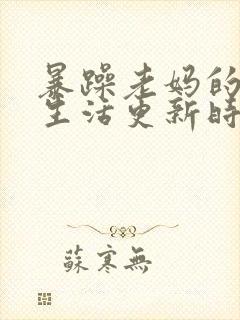 暴躁老妈的
生活更新時
蘇寒無